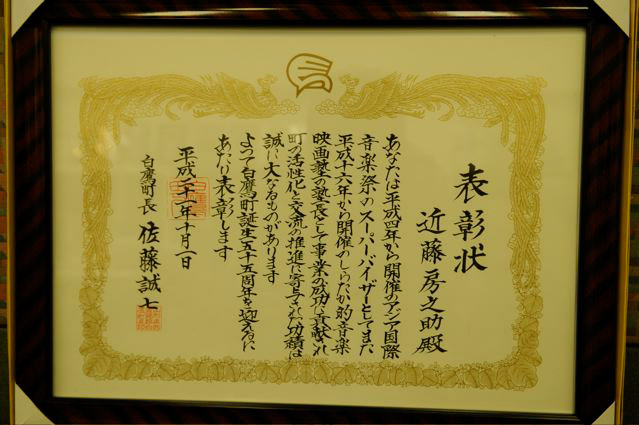 表彰状
近藤房之助殿
あなたは平成四年から開催のアジア国際
音楽祭のスーパーバイザーとしてまた
平成十六年から開催のしらたか的音楽
映画塾の塾長として事業の成功に貢献され
町の活性化と交流の推進に寄与された功績は
誠に大なるものがあります
よって白鷹町誕生五十五周年を迎えるに
あたり表彰します
平成二十一年十月一日
白鷹町長 佐藤誠七